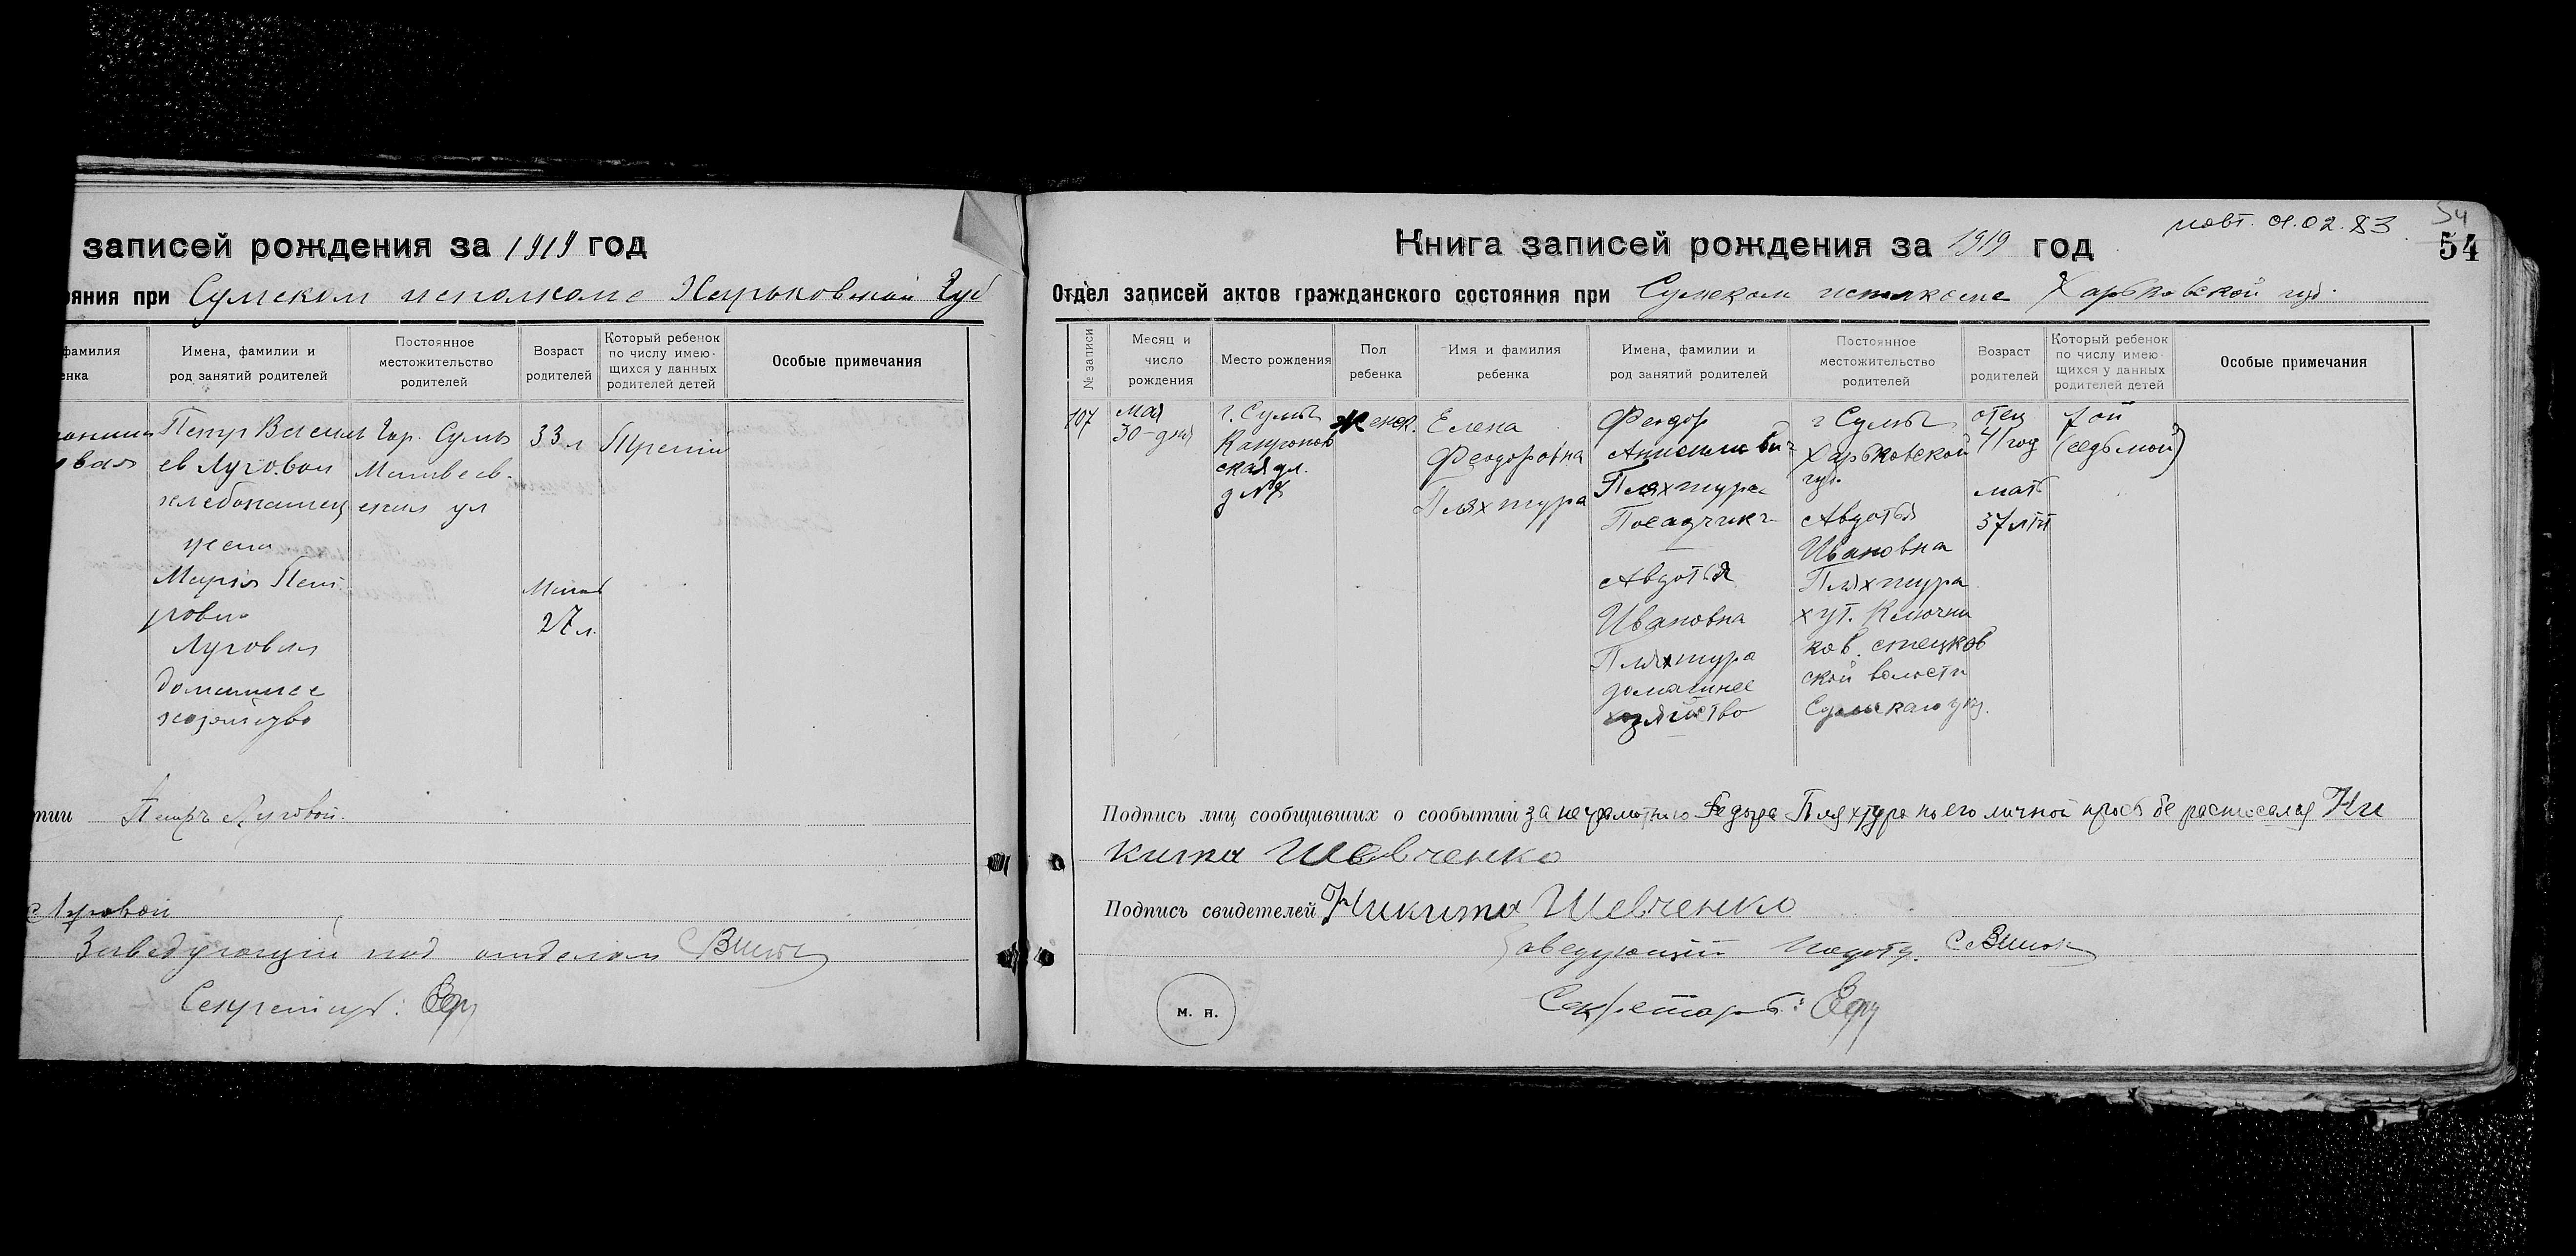 записей рождения за 1919 год
ояния при Сумском исполкоме Харьковской Губ
фамилия
енка
Имена, фамилии и
род занятий родителей
Постоянное
местожительство
родителей
Возраст
родителей
Который ребенок
по числу имею-
щихся у данных
родителей детей
Особые примечания
Петр Василь
ев Луговой
хлебопашец
жена
Мария Пет
ровна
Луговая
домашнее
хозяйство
Гор. Сумы
Матвеев-
ская ул
33 л
Мать
27 л.
Третий
тии Петръ Луговой.
Луговой
Заведующий под отделом
Секретарь:
Книга записей рождения за 1919 год
повт. 01.02.83
54
54
Отдел записей актов гражданского состояния при Сумском исполкоме Харьковской губ.
№ записи
Месяц и
число
рождения
Место рождения
Пол
ребенка
Имя и фамилия
ребенка
Имена, фамилии и
род занятий родителей
Постоянное
местожительство
родителей
Возраст
родителей
Который ребенок
по числу имею-
щихся у данных
родителей детей
Особые примечания
107
мая
30-дня
г. Сумы
ская ул.
Женск.
Елена
Феодоровна
Пляхтура
Феодор
Пляхтура
Посадчик
Авдотья
Ивановна
Пляхтура
домашнее
хозяйство
г Сумы
Харьковской
губ.
Авдотья
Ивановна
Пляхтура
хут. Ключни
ков. стецков
ской волости
Сумскаго уез.
отец
41 год
мать
37 лет
7 ой
(седьмой)
Подпись лиц сообщивших о сообытии за неграмотного Федора Пляхтура по его личной прось бе расписался Ни
кита Шевченко
Подпись свидетелей Никита Шевченко
Заведующий Подотд.
Секретарь:
м. п.